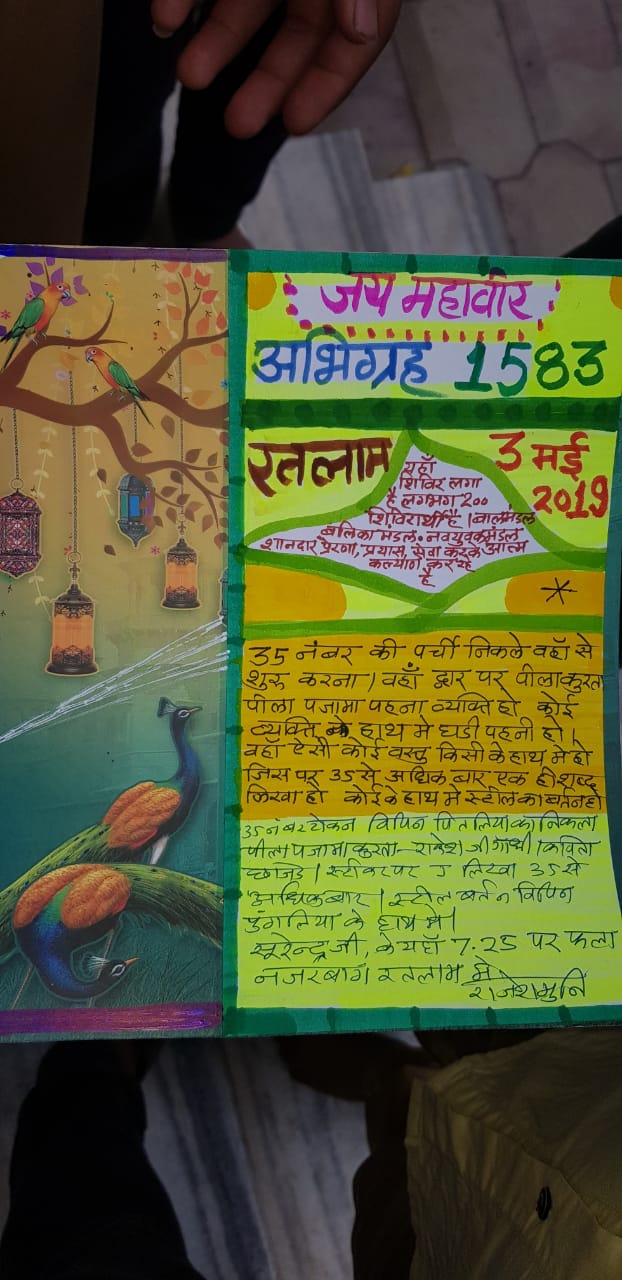 जय महावीर
अभिग्रह 1583
रतलाम
3 मई
2019
यहाँ
शिविर लगा
है लगभग 200
शिविरार्थी है । बालमंडल
बलिका मंडल, नवयुवकमंडल
शानदार प्रेरणा, प्रयास, सेवा करके आत्म
कल्याण कर रहे
है
35 नंबर की पर्ची निकले वहाँ से
शुरु करना । वहाँ द्वार पर पीलाकुरता
पीला पजामा पहना व्यक्ति हो कोई
व्यक्ति के हाथ मे घडी पहनी हो ।
वहा ऐसी कोई वस्तु किसी के हाथ मे हो
जिस पर 35 से अधिक बार एक ही शब्द
लिखा हो कोई के हाथ मे स्टील का बर्तन हो
35 नंबर टोकन विपिन पितलिया को निकला
पीला पजामा कुरता राकेश जी गांधी । कविता
स्टीकर पर लिखा 35 से
अधिकबार । स्टील बर्तन विपिन
पुंगलिया के हाथ मे ।
सुरेन्द्र जी, के यहाँ 7.25 पर फला
नजरबाग रतलाम मे
राजेशमुनि